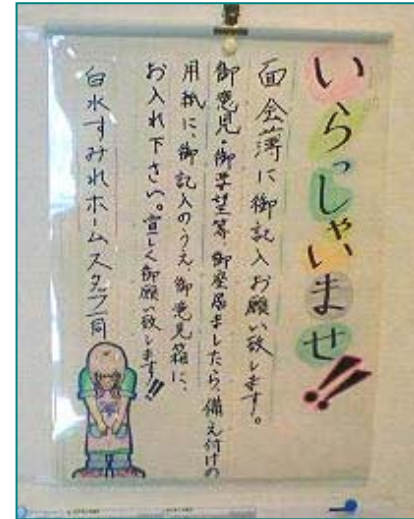 いらっしゃいませ!!
面会簿に御記入お願い致します。
御意見・御要望等、御座居ましたら、備え付けの
用紙に、御記入のうえ、御意見箱に、
お入れ下さい。宜しく御願い致します!!
白水すみれホームスタッフ一同